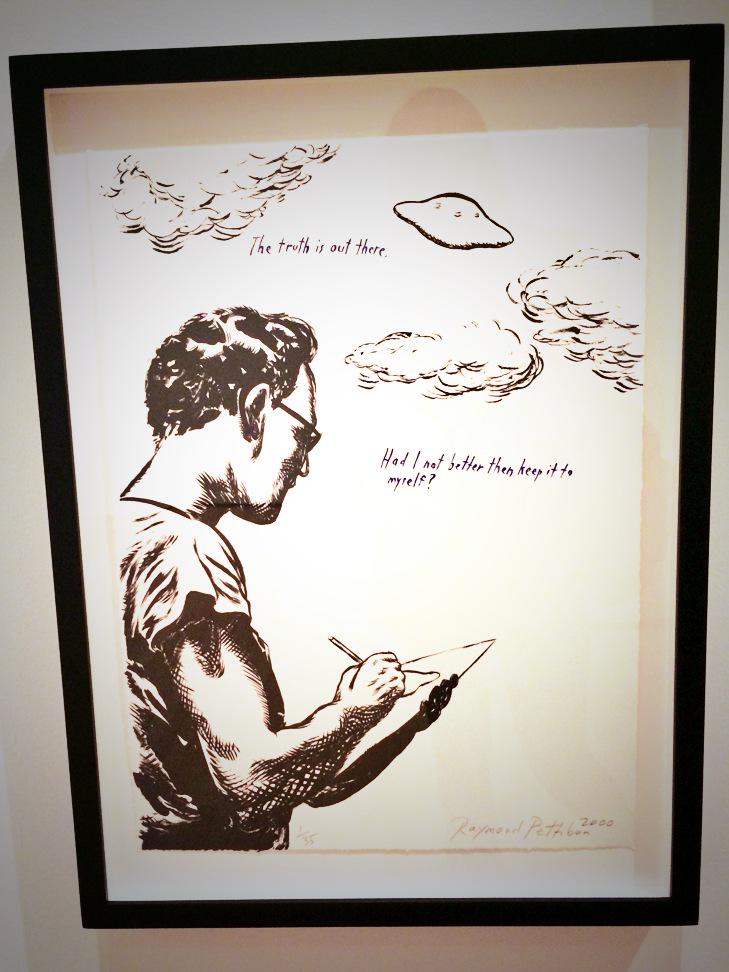 The truth is out there.
Had I not better then keep it to
myself?
1/35
Raymond Pettibon 2000